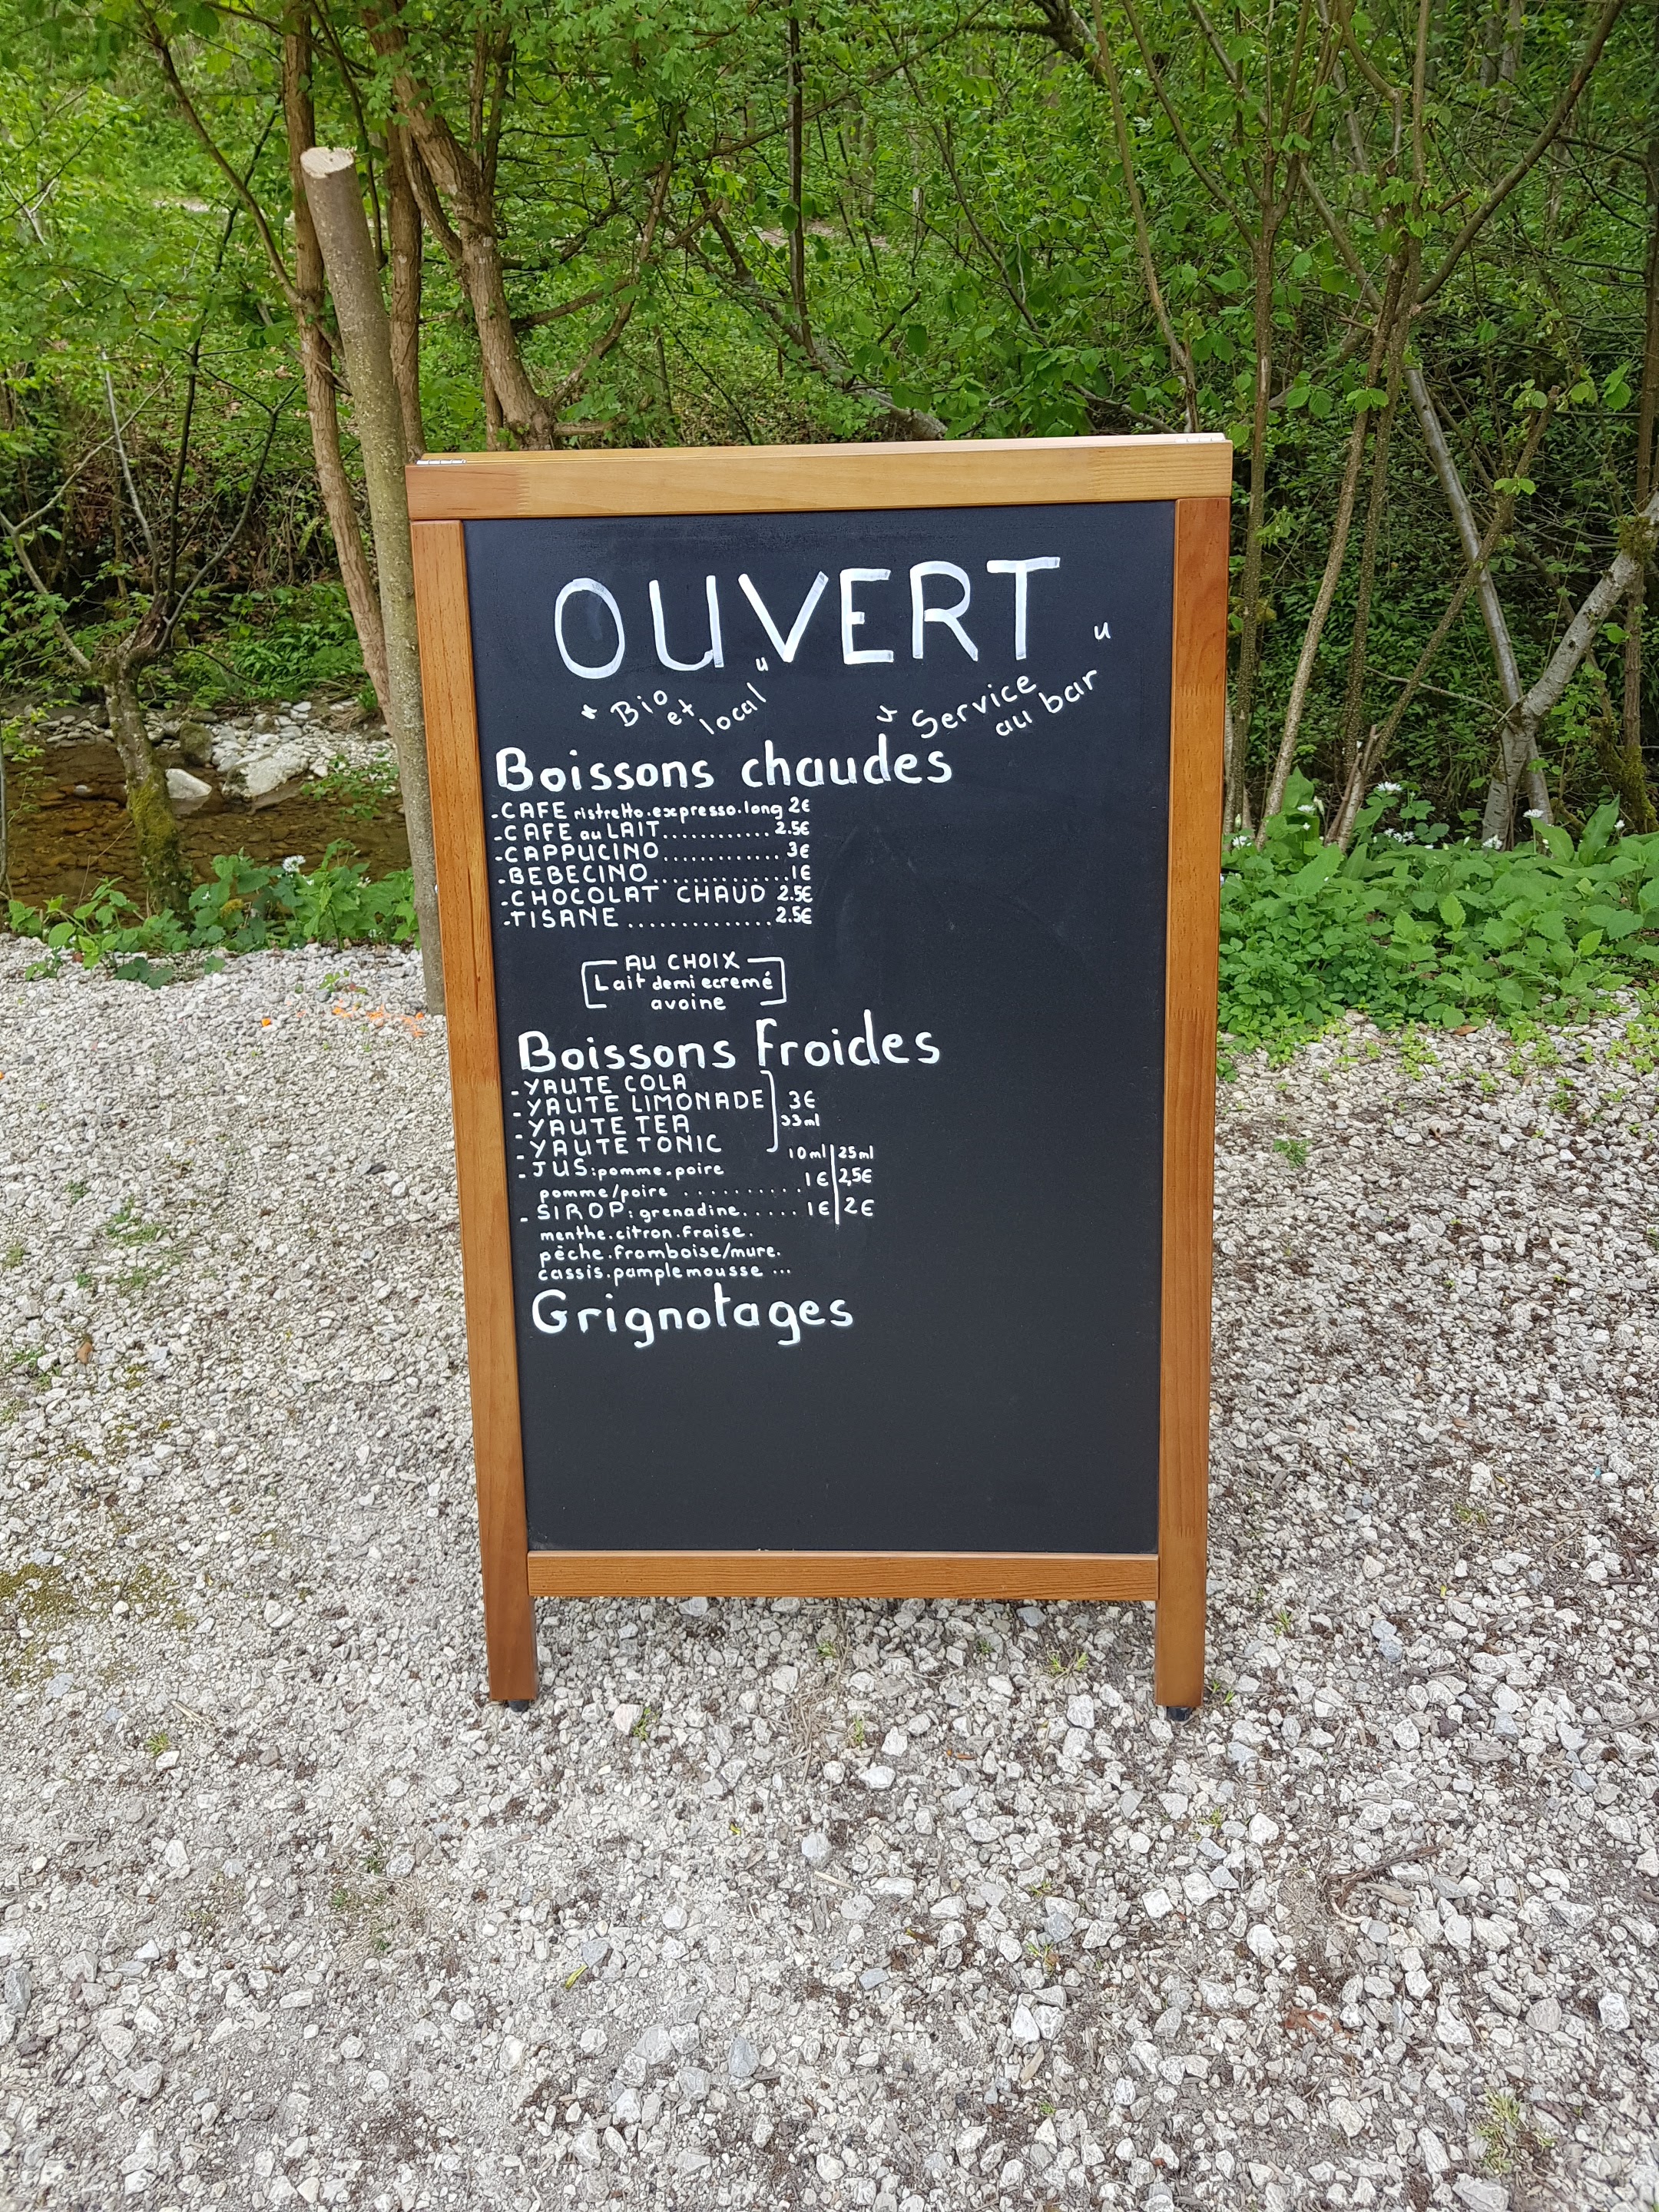 OUVERT
" Bio et local "
" Service au bar "
Boissons chaudes
- CAFE ristretto.expresso.long 2€
- CAFE au LAIT............ 2.5€
- CAPPUCINO............. 3€
- BEBECINO..............1€
- CHOCOLAT CHAUD 2.5€
- TISANE ..............2.5€
AU CHOIX
Lait demi ecremé
avoine
Boissons Froides
- YAUTE COLA
- YAUTE LIMONADE 3€
- YAUTE TEA 33ml
- YAUTE TONIC
10ml | 25ml
- JUS: pomme.poire
pomme/poire .......... 1€ | 2,5€
- SIROP: grenadine..... 1€ | 2€
menthe.citron.fraise.
pêche.framboise/mure.
cassis.pamplemousse ...
Grignotages